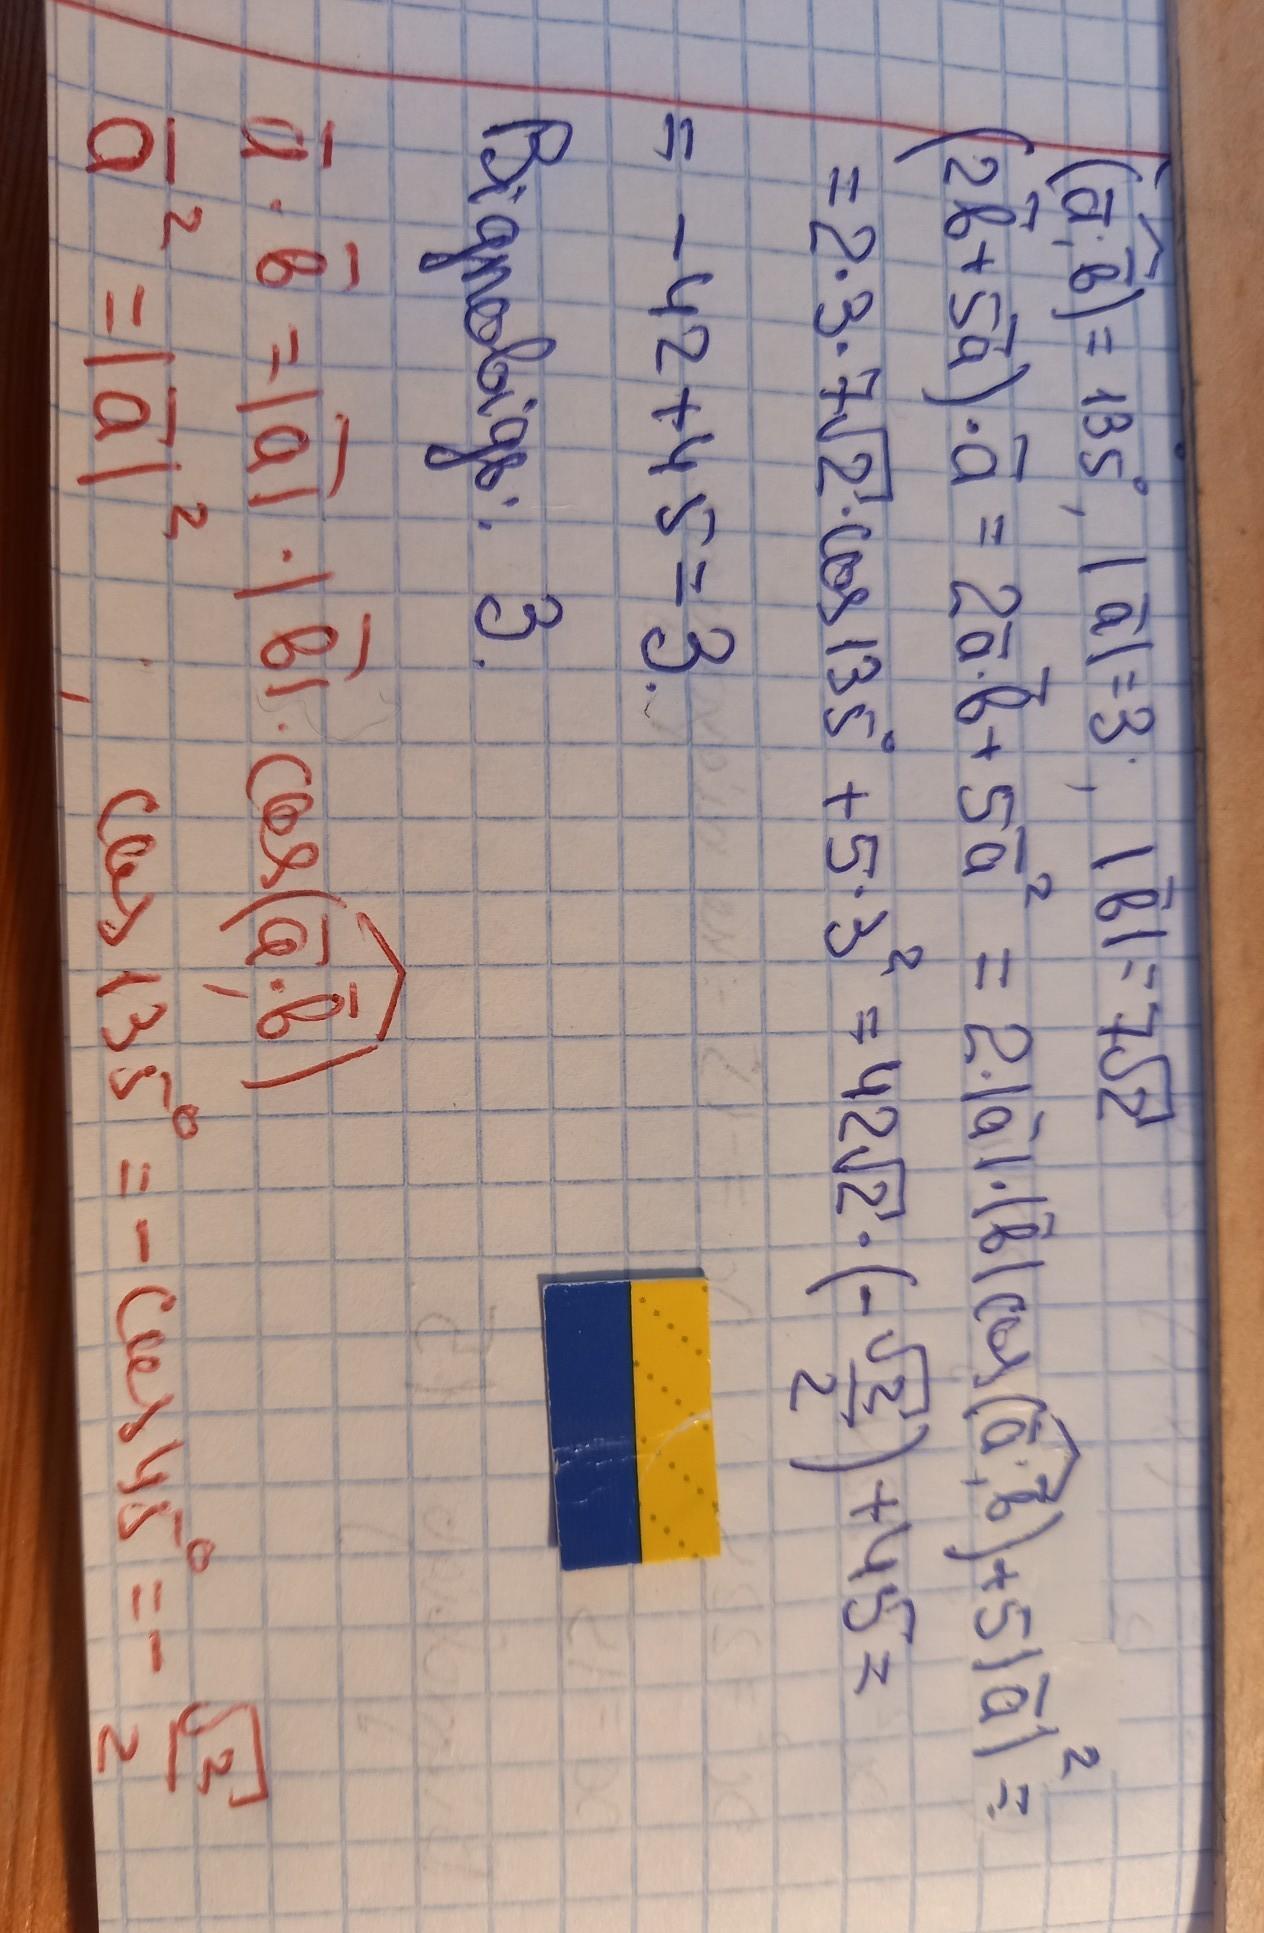 (a̅,^b̅) = 135°, |a̅| = 3, |b̅| = 7√2
(2b̅ + 5a̅)·a̅ = 2a̅·b̅ + 5a̅² = 2·|a̅|·|b̅| cos(a̅,^b̅) + 5|a̅|² =
= 2·3·7√2·cos 135° + 5·3² = 42√2·(-√2/2) + 45 =
= -42 + 45 = 3.
Відповідь: 3.
a̅·b̅ = |a̅|·|b̅|·cos(a̅,^b̅)
a̅² = |a̅|² cos 135° = -cos 45° = -√2/2